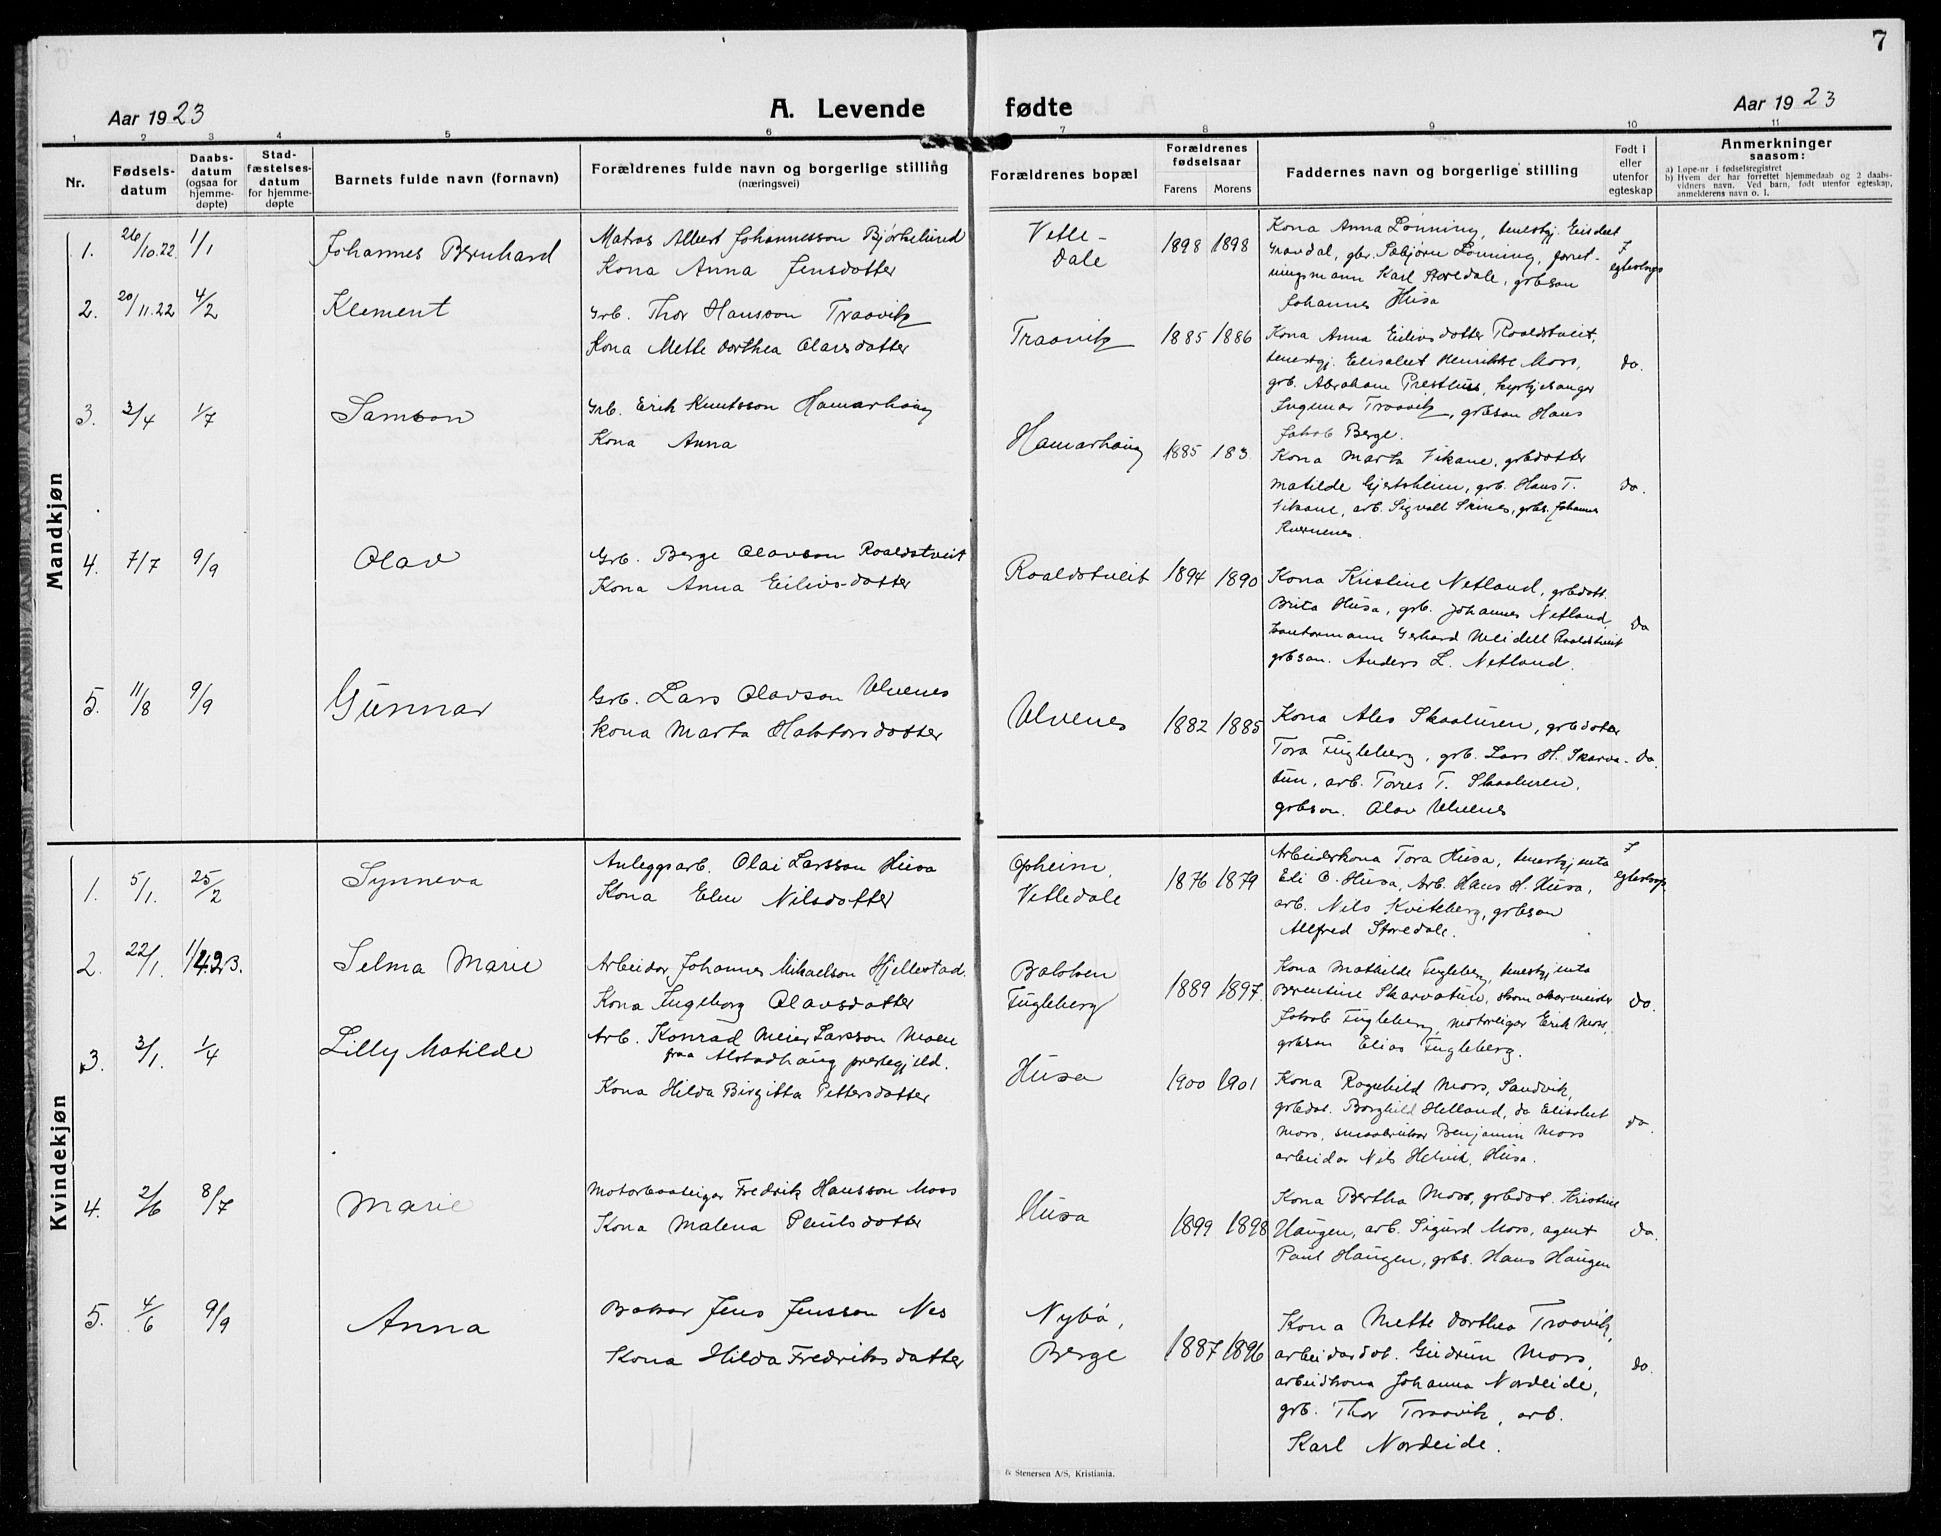 7
Aar 1923
A. Levende
fødte
Aar 1923
1 2 3 4 5 6 7 8 9 10 11
Nr.
Fødsels-
datum
Daabs-
datum
(ogsaa for
hjemme-
døpte)
Stad-
fæstelses-
datum
for hjemme-
døpte
Barnets fulde navn (fornavn)
Forældrenes fulde navn og borgerlige stilling
(næringsvei)
Forældrenes bopæl
Forældrenes
fødselsaar
Farens Morens
Faddernes navn og borgerlige stilling
Født i
eller
utenfor
egteskap
Anmerkninger
saasom:
a) Løpe-nr i fødselsregistret
b) Hvem der har forrettet hjemmedaab og 2 daabs-
vidners navn. Ved barn, født utenfor egteskap,
anmelderens navn o. l.
Mandkjøn
1. 26/10.22 1/1 Johannes Bernhard
Matros Albert Johannesson Bjørkelund
Kona Anna Jensdotter
Vetle-
dale
1898 1898
Kona Anna Lønning, tenestgj.
gbr. Lønning,
Karl Storedale, grbson
Johannes Husa
I
2. 20/11.22 4/2 Klement
Grb. Thor Hansson Traavik
Kona Mette Dorthea Olavsdotter
Traavik
1885 1886
Kona Anna Eilivsdotter Roaldstveit,
tenestgj. Elisabet Henrikke Moss,
grb. Abraham Presthus,
Ingemar Traavik, grbson Hans
Jakob Berge.
do.
3. 2/4 1/7 Samson
Grb. Erik Knutsson Hamarhaug
Kona Anna
Hamarhaug
1885 183
Kona Marta Vikane, grbdotter
Matilde Gjertsheim, grb. Hans T.
Vikane, arb. Sigvald Skines, grbs. Johannes
do.
4. 7/7 9/9 Olav
Grb. Berge Olavson Roaldstveit
Kona Anna Eilivsdotter
Roaldstveit
1894 1890
Kona Kristine Netland, grbdott.
Brita Husa, grb. Johannes Netland,
Gerhard Roaldstveit
grbson. Anders L. Netland.
do
5. 11/8 9/9 Gunnar
Grb. Lars Olavson Ulvenes
Kona Marta Halstorsdotter
Ulvenes
1882 1885
Kona Ales Skaaluren, grbdotter
Tora Fugleberg, grb. Lars H. Skarva-
tun, arb. Torres T. Skaaluren,
grbson. Olav Ulvenes
do.
Kvindekjøn
1. 5/1. 25/2 Synneva
Anleggsarb. Olai Larsson Husa
Kona Elen Nilsdotter
Opheim,
Vetledale
1876 1879
Arbeiderkona Tora Husa, tenestgjenta
Eli O. Husa, Arb. Hans H. Husa,
arb. Nils Kviteberg, grbson
Allfred Storedale.
I
2. 22/1. 1/4.23. Selma Marie
Arbeidar Johannes Mikaelson Hjellestad
Kona Ingeborg Olavsdotter
Fugleberg
1889 1897.
Kona Mathilde Fugleberg, tenestgjenta
Berentine Skarvatun, skomakarmeister
Jakob Fugleberg, motoreigar Erik Moss,
grbson Elias Fugleberg.
do.
3. 3/1. 1/4 Lilly Matilde
Arb. Konrad Meier Larsson Moen
fraa Alstadhaug prestegjeld.
Kona Hilda Birgitta Pettersdotter
Husa
1900 1901
Kona Ragnhild Moss, Sandvik,
grbdot. Borghild Helland, do Elisabet
Moss, smaabrukar Benjamin Moss
arbeidar Nils Helvik, Husa.
do.
4. 2/6 8/7 Marie
Motorbaateigar Fredrik Hansson Moss
Kona Malena Paulsdotter
Husa
1899 1898
Kona Bertha Moss, grbdot. Kristine
Haugen, arb. Sigurd Moss, agent
Paul Haugen, grbs. Hans Haugen
do.
5. 4/6 9/9 Anna
Bakar Jens Jensson Nes
Kona Hilda Fredriksdatter
Nybø,
Berge
1887 1896
Kona Mette Dorthea Traavik,
arbeidardot. Gudrun Moss,
arbeidkona Johanna Nordeide,
grb. Thor Traavik, arb.
Karl Nordeide.
do.
Stenersen A/S, Kristiania.